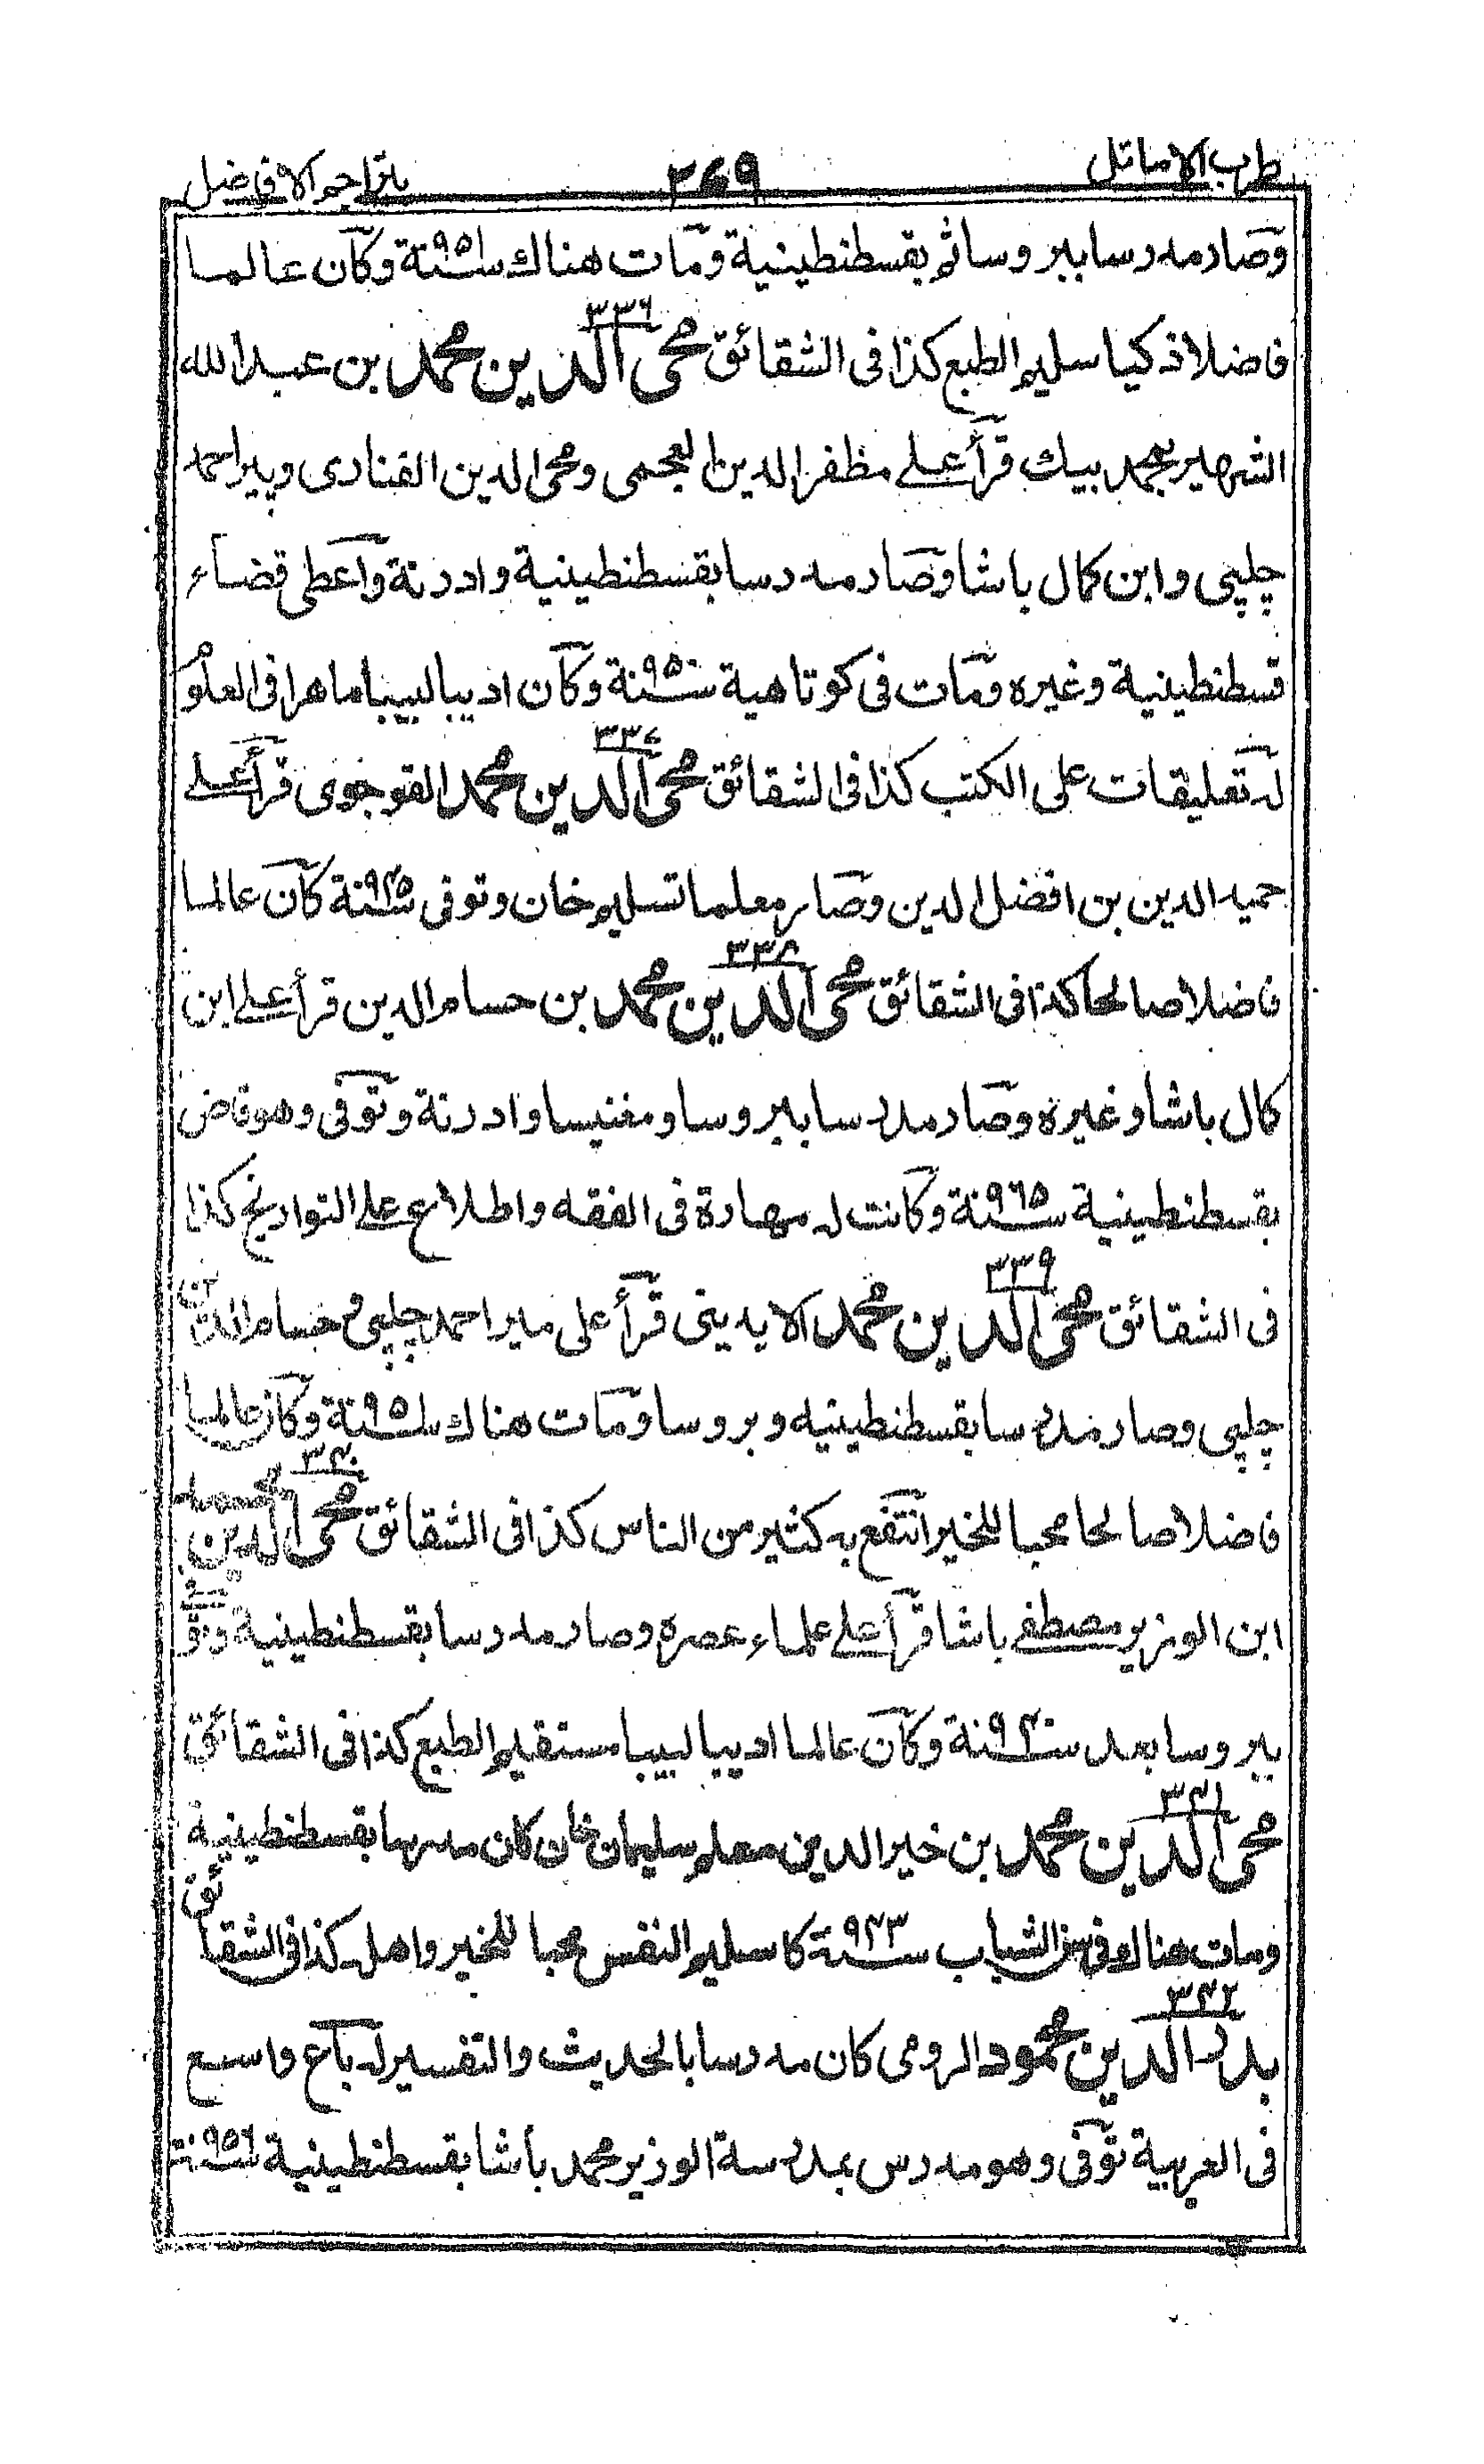 طرب الاماثل
۲۶۹
بتراجم الافاضل
وصار مدرسا ببروسا ثم بقسطنطينية ومات هناك سنة ۹۵۱ وكان عالما
۳۳۶
فاضلا ذكيا سليم الطبع كذا فى الشقائق محى الدين محمد بن عبد الله
الشهير بمحمد بيك قرأ على مظفر الدين العجمى ومحى الدين الفنارى وپير احمد
چلپى وابن كمال باشا وصار مدرسا بقسطنطينية وادرنة واعطى قضاء
قسطنطينية وغيره ومات فى كوتاهية سنة ۹۵۰ وكان اديبا لبيبا ماهرا فى العلوم
۳۳۷
له تعليقات على الكتب كذا فى الشقائق محى الدين محمد القوجوى قرأ على
حميد الدين بن افضل الدين وصار معلما لسليم خان وتوفى سنة كان عالما
۳۳۸
فاضلا صالحا كذا فى الشقائق محى الدين محمد بن حسام الدين قرأ على ابن
كمال باشا وغيره وصار مدرسا ببروسا ومغنيسا وادرنة وتوفى وهو قاض
بقسطنطينية سنة ۹۶۵ وكانت له مهارة فى الفقه واطلاع على التواريخ كذا
۳۳۹
فى الشقائق محى الدين محمد الايدينى قرأ على مير احمد چلپى وحسام الدين
چلپى وصار مدرسا بقسطنطينيه وبروسا ومات هناك سنة ۹۵۱ وكان عالما
۳۴۰
فاضلا صالحا محبا للخير انتفع به كثير من الناس كذا فى الشقائق محى الدين محمد
ابن الوزير مصطفى باشا قرأ على علماء عصره وصار مدرسا بقسطنطينية وتوفى
ببروسا بعد سنة ۹۴۰ وكان عالما اديبا لبيبا مستقيم الطبع كذا فى الشقائق
۳۴۱
محى الدين محمد بن خير الدين معلم سليمان خان كان مدرسا بقسطنطينية
ومات هناك فى سن الشباب سنة ۹۴۳ كا سليم النفس محبا للخير واهله كذا فى الشقائق
۳۴۲
بدر الدين محمود الرومى كان مدرسا بالحديث والتفسير له باع واسع
فى العربية توفى وهو مدرس بمدرسة الوزير محمد باشا بقسطنطينية سنة ۹۵۶